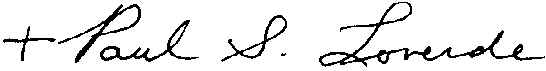 + Paul S. Loverde